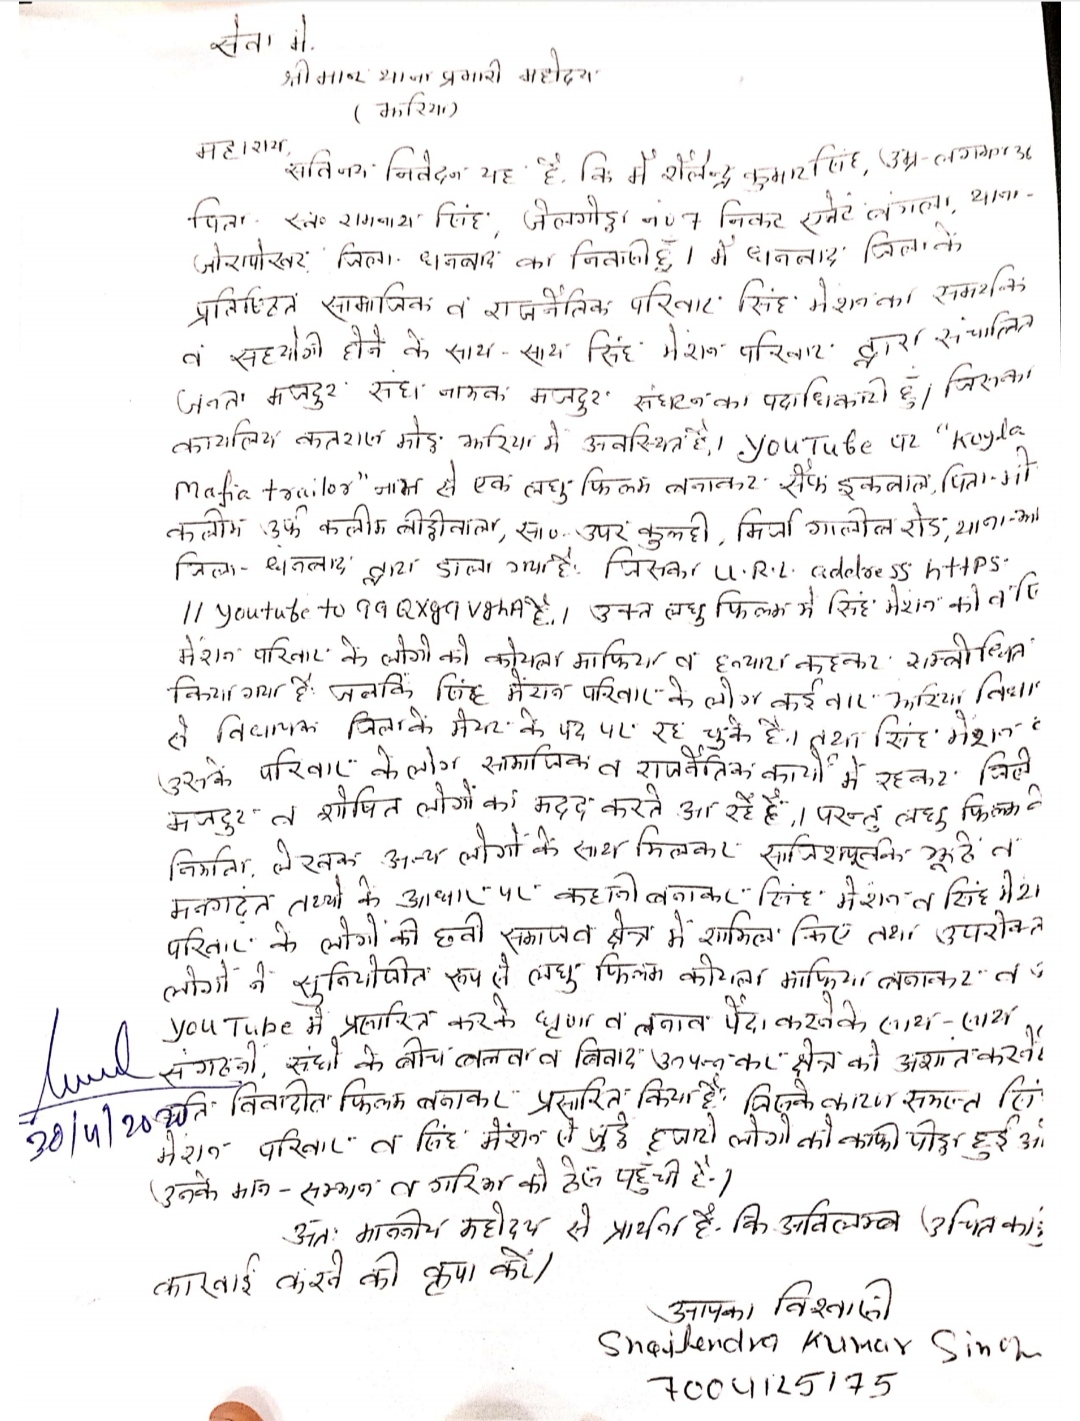 सेवा में.
श्रीमान थाना प्रभारी महोदय
( झरिया)
महाशय,
सविनय निवेदन यह है. कि मैं शैलेन्द्र कुमार सिंह, उम्र-लगभग 36
पिता. स्व० रामनाथ सिंह, जेलगोड़ा नं० 7 निकट एजेंट बंगला, थाना-
जोरापोखर, जिला. धनबाद का निवासी हूँ। मैं धनबाद जिला के
प्रतिष्ठित सामाजिक वं राजनैतिक परिवार सिंह मेंशन का समर्थक
वं सहयोगी होने के साथ-साथ सिंह मेंशन परिवार द्वारा संचालित
जनता मजदुर संघ नामक मजदुर संघटन का पदाधिकारी हुँ। जिसका
कार्यालय कतरास मोड़ झरिया में अवस्थित है,। YouTube पर "Koyla
Mafia trailor" नाम से एक लघु फिल्म बनाकर सैफ इकबाल, पिता-मो
कलीम उर्फ कलीम लोदीवाला, सा०- उपर कुल्ही, मिर्जा गालीब रोड, थाना-झ
जिला- धनबाद द्वारा डाला गया है. जिसका U.R.L. address https.
// youtube to 99QXg9VghA है.। उक्त लघु फिल्म में सिंह मेंशन को व सि
मेंशन परिवार के लोगो को कोयला माफिया व हत्यारा कहकर सम्बोधित
किया गया है. जबकि सिंह मेंशन परिवार के लोग कई बार झरिया विधा
से विधायक जिला के मेयर के पद पर रह चुके है.। तथा सिंह मेंशन व
उसके परिवार के लोग सामाजिक व राजनैतिक कार्यो में रहकर जिले
मजदुर व शोषित लोगों का मदद करते आ रहे है,। परन्तु लघु फिल्म के
निर्माता, लेखक अन्य लोगों के साथ मिलकर साजिशपूर्वक झूठे व
मनगढ़ंत तथ्यों के आधार पर कहानी बनाकर सिंह मेंशन व सिंह मेंश
परिवार के लोगों की छवी समाज व क्षेत्र में शामिल किए तथा उपरोक्त
लोगों ने सुनियोजीत रूप से लघु फिल्म कोयला माफिया बनाकर व उ
YouTube में प्रसारित करके घृणा व तनाव पैदा करने के साथ-साथ
संगठनों, संघों के बीच बलवा व विवाद उत्पन्न कर क्षेत्र को अशांत करने
विवादीत फिल्म बनाकर प्रसारित किया है. जिसके कारण समस्त सिं
मेंशन परिवार व सिंह मेंशन से जुड़े हजारो लोगो को काफी पीड़ा हुई औ
उनके मान-सम्मान व गरिमा को ठेस पहुँची है.।
अंत: माननीय महोदय से प्रार्थना है. कि अविलम्ब उचित का
कारवाई करने की कृपा करें।
आपका विश्वासी
Shailendra Kumar Singh
7004125175
30/4/2020